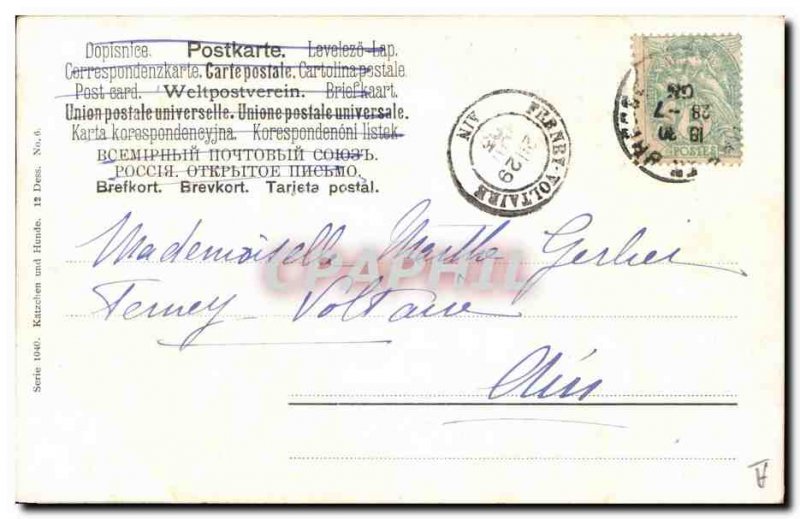 Dopisnice. Postkarte. Levelező-Lap.
Correspondenzkarte. Carte postale. Cartolina postale.
Post card. Weltpostverein. Briefkaart.
Union postale universelle. Unione postale universale.
Karta korespondencyjna. Korespondenční lístek.
ВСЕМІРНЫЙ ПОЧТОВЫЙ СОЮЗЪ.
РОССІЯ. ОТКРЫТОЕ ПИСЬМО.
Brefkort. Brevkort. Tarjeta postal.
FERNEY-VOLTAIRE
29
AIN
18
28 -7
POSTES
Mademoiselle Marthe Gerlier
Ferney-Voltaire
Ain
CPAPHIL
Serie 1040. Kätzchen und Hunde. 12 Dess. No. 6.